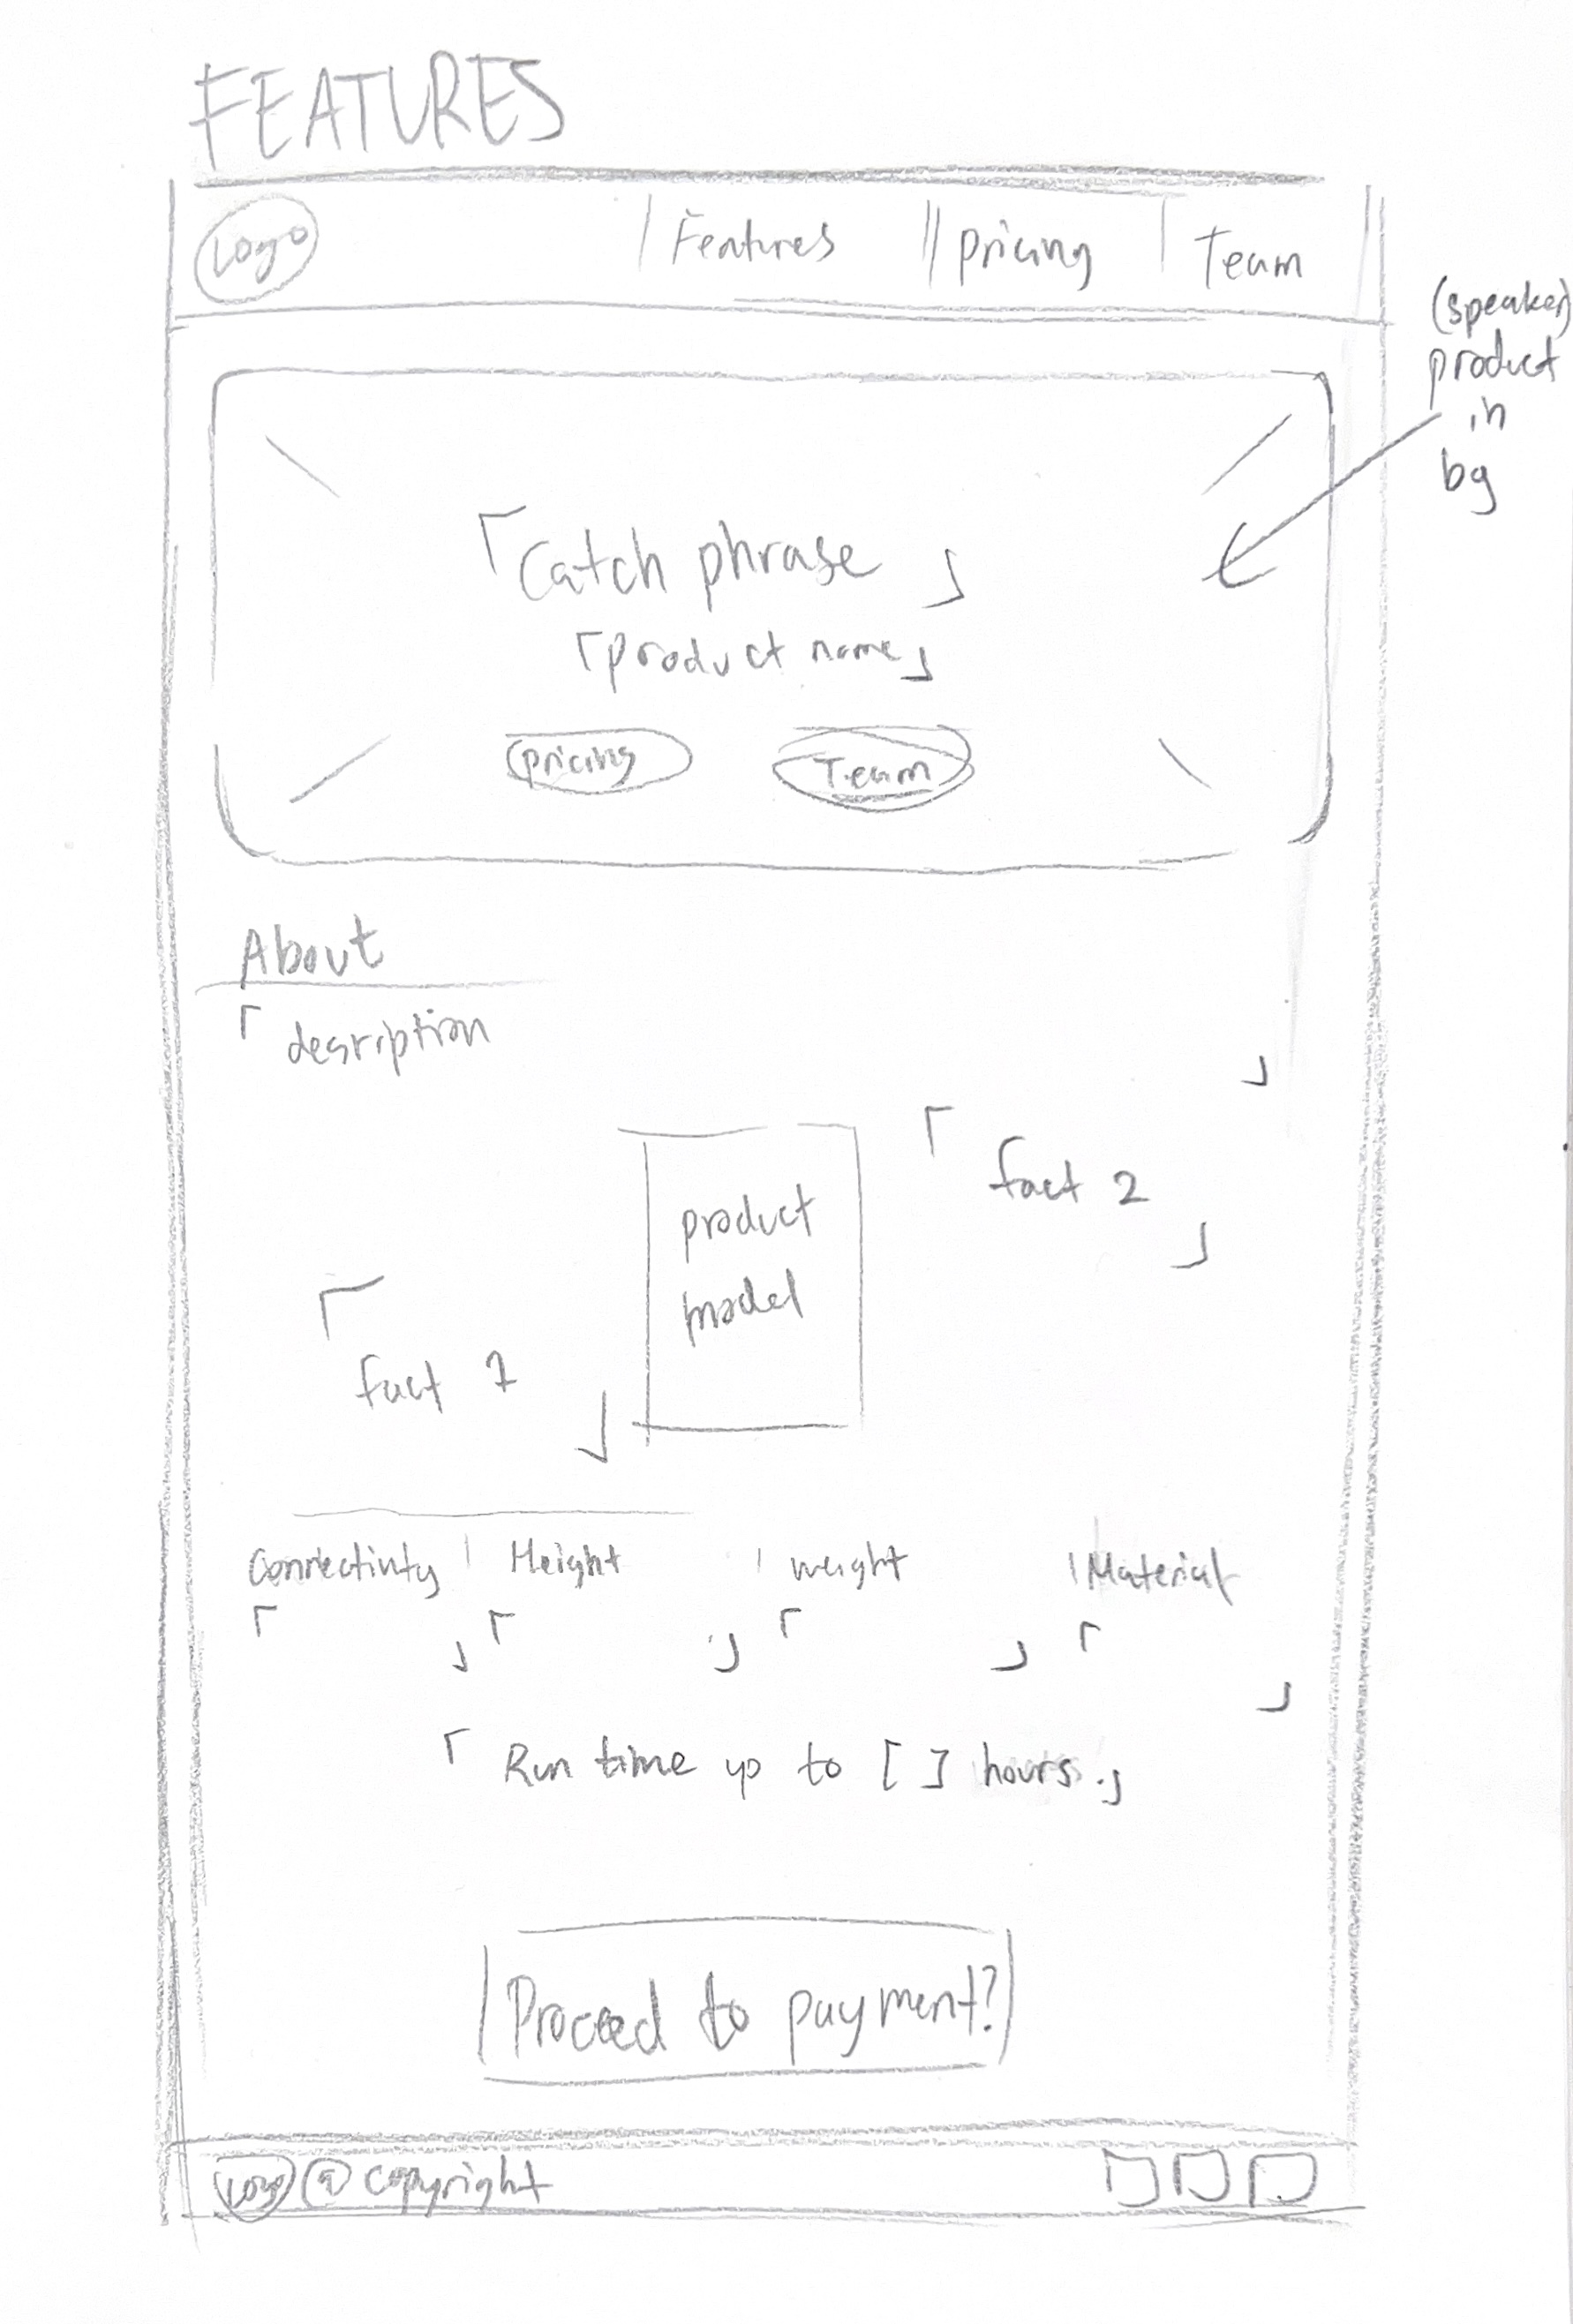 FEATURES
Logo | Features || pricing | Team
(speaker)
product
in
bg
「Catch phrase」
「product name」
pricing Team
About
「desription」
「fact 2」
product
model
「fact 1」
Connectivity | Height | weight | Material
「 」「 」「 」「 」
「Run time up to [ ] hours.」
Proceed to payment?
Logo @ copyright